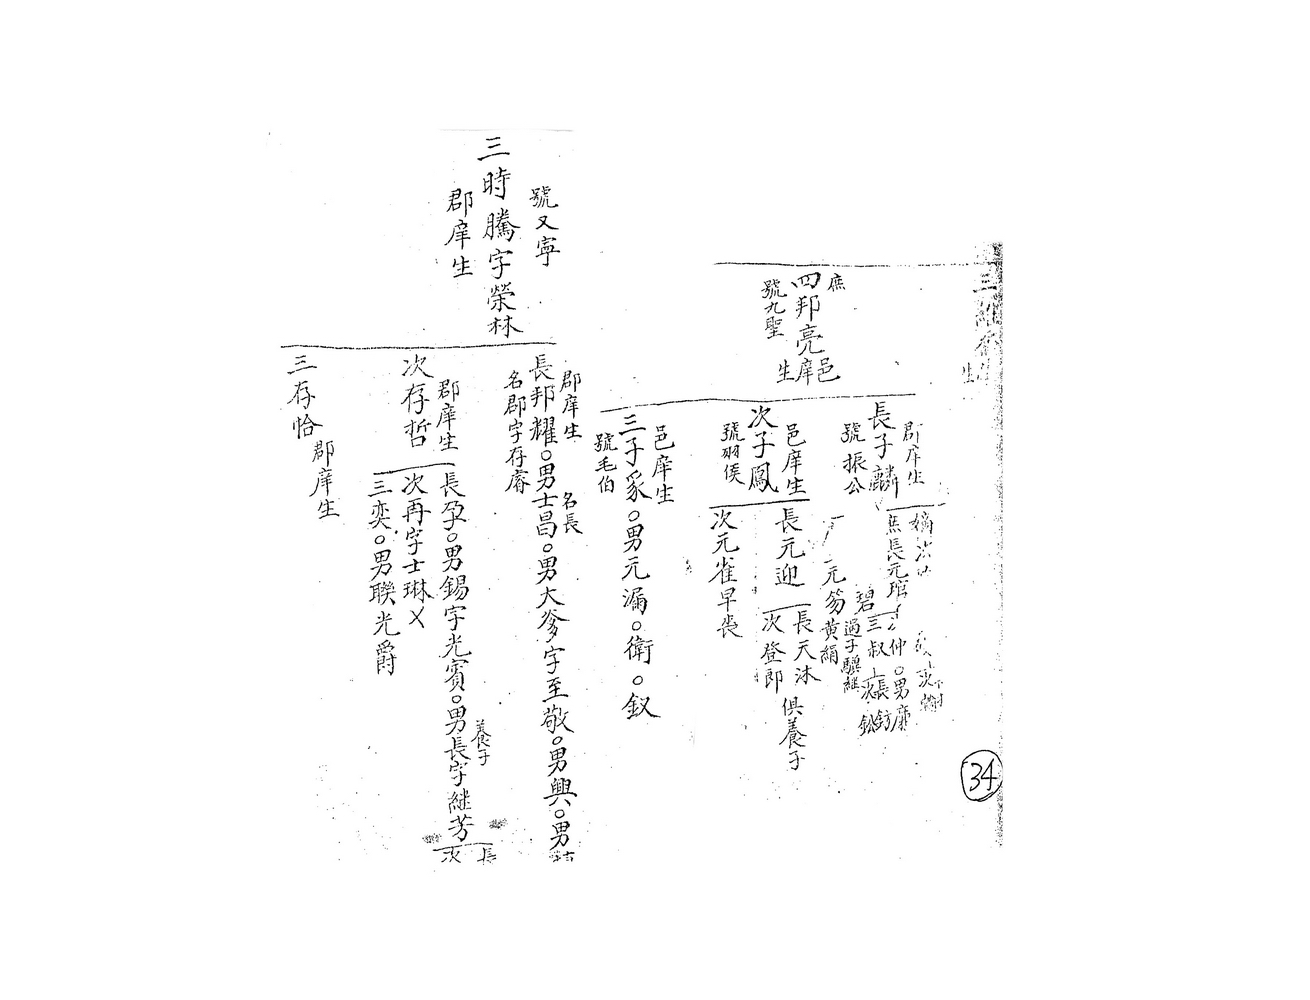 庶
四邦亮邑庠生
號九聖
郡庠生
長子麟
號振公
邑庠生
次子鳳
號羽侯
邑庠生
三子豸○男元漏○衛○釵
號毛伯
嫡
庶長元琯
仲○男廉
碧三叔
長鈁
次鈆
過子驥継
元笏黄絹
長元迎
次元雀早丧
長天沐
次登郎
俱養子
號又寧
三時騰字榮林
郡庠生
郡庠生 名長
長邦耀○男士昌○男大爹字至敬○男興○男
名郡字存睿
郡庠生
次存哲
三存恰郡庠生
長孕○男錫字光賓○男長字継芳
養子
次再字士琳乂
三奕○男聯光爵
長
次
34